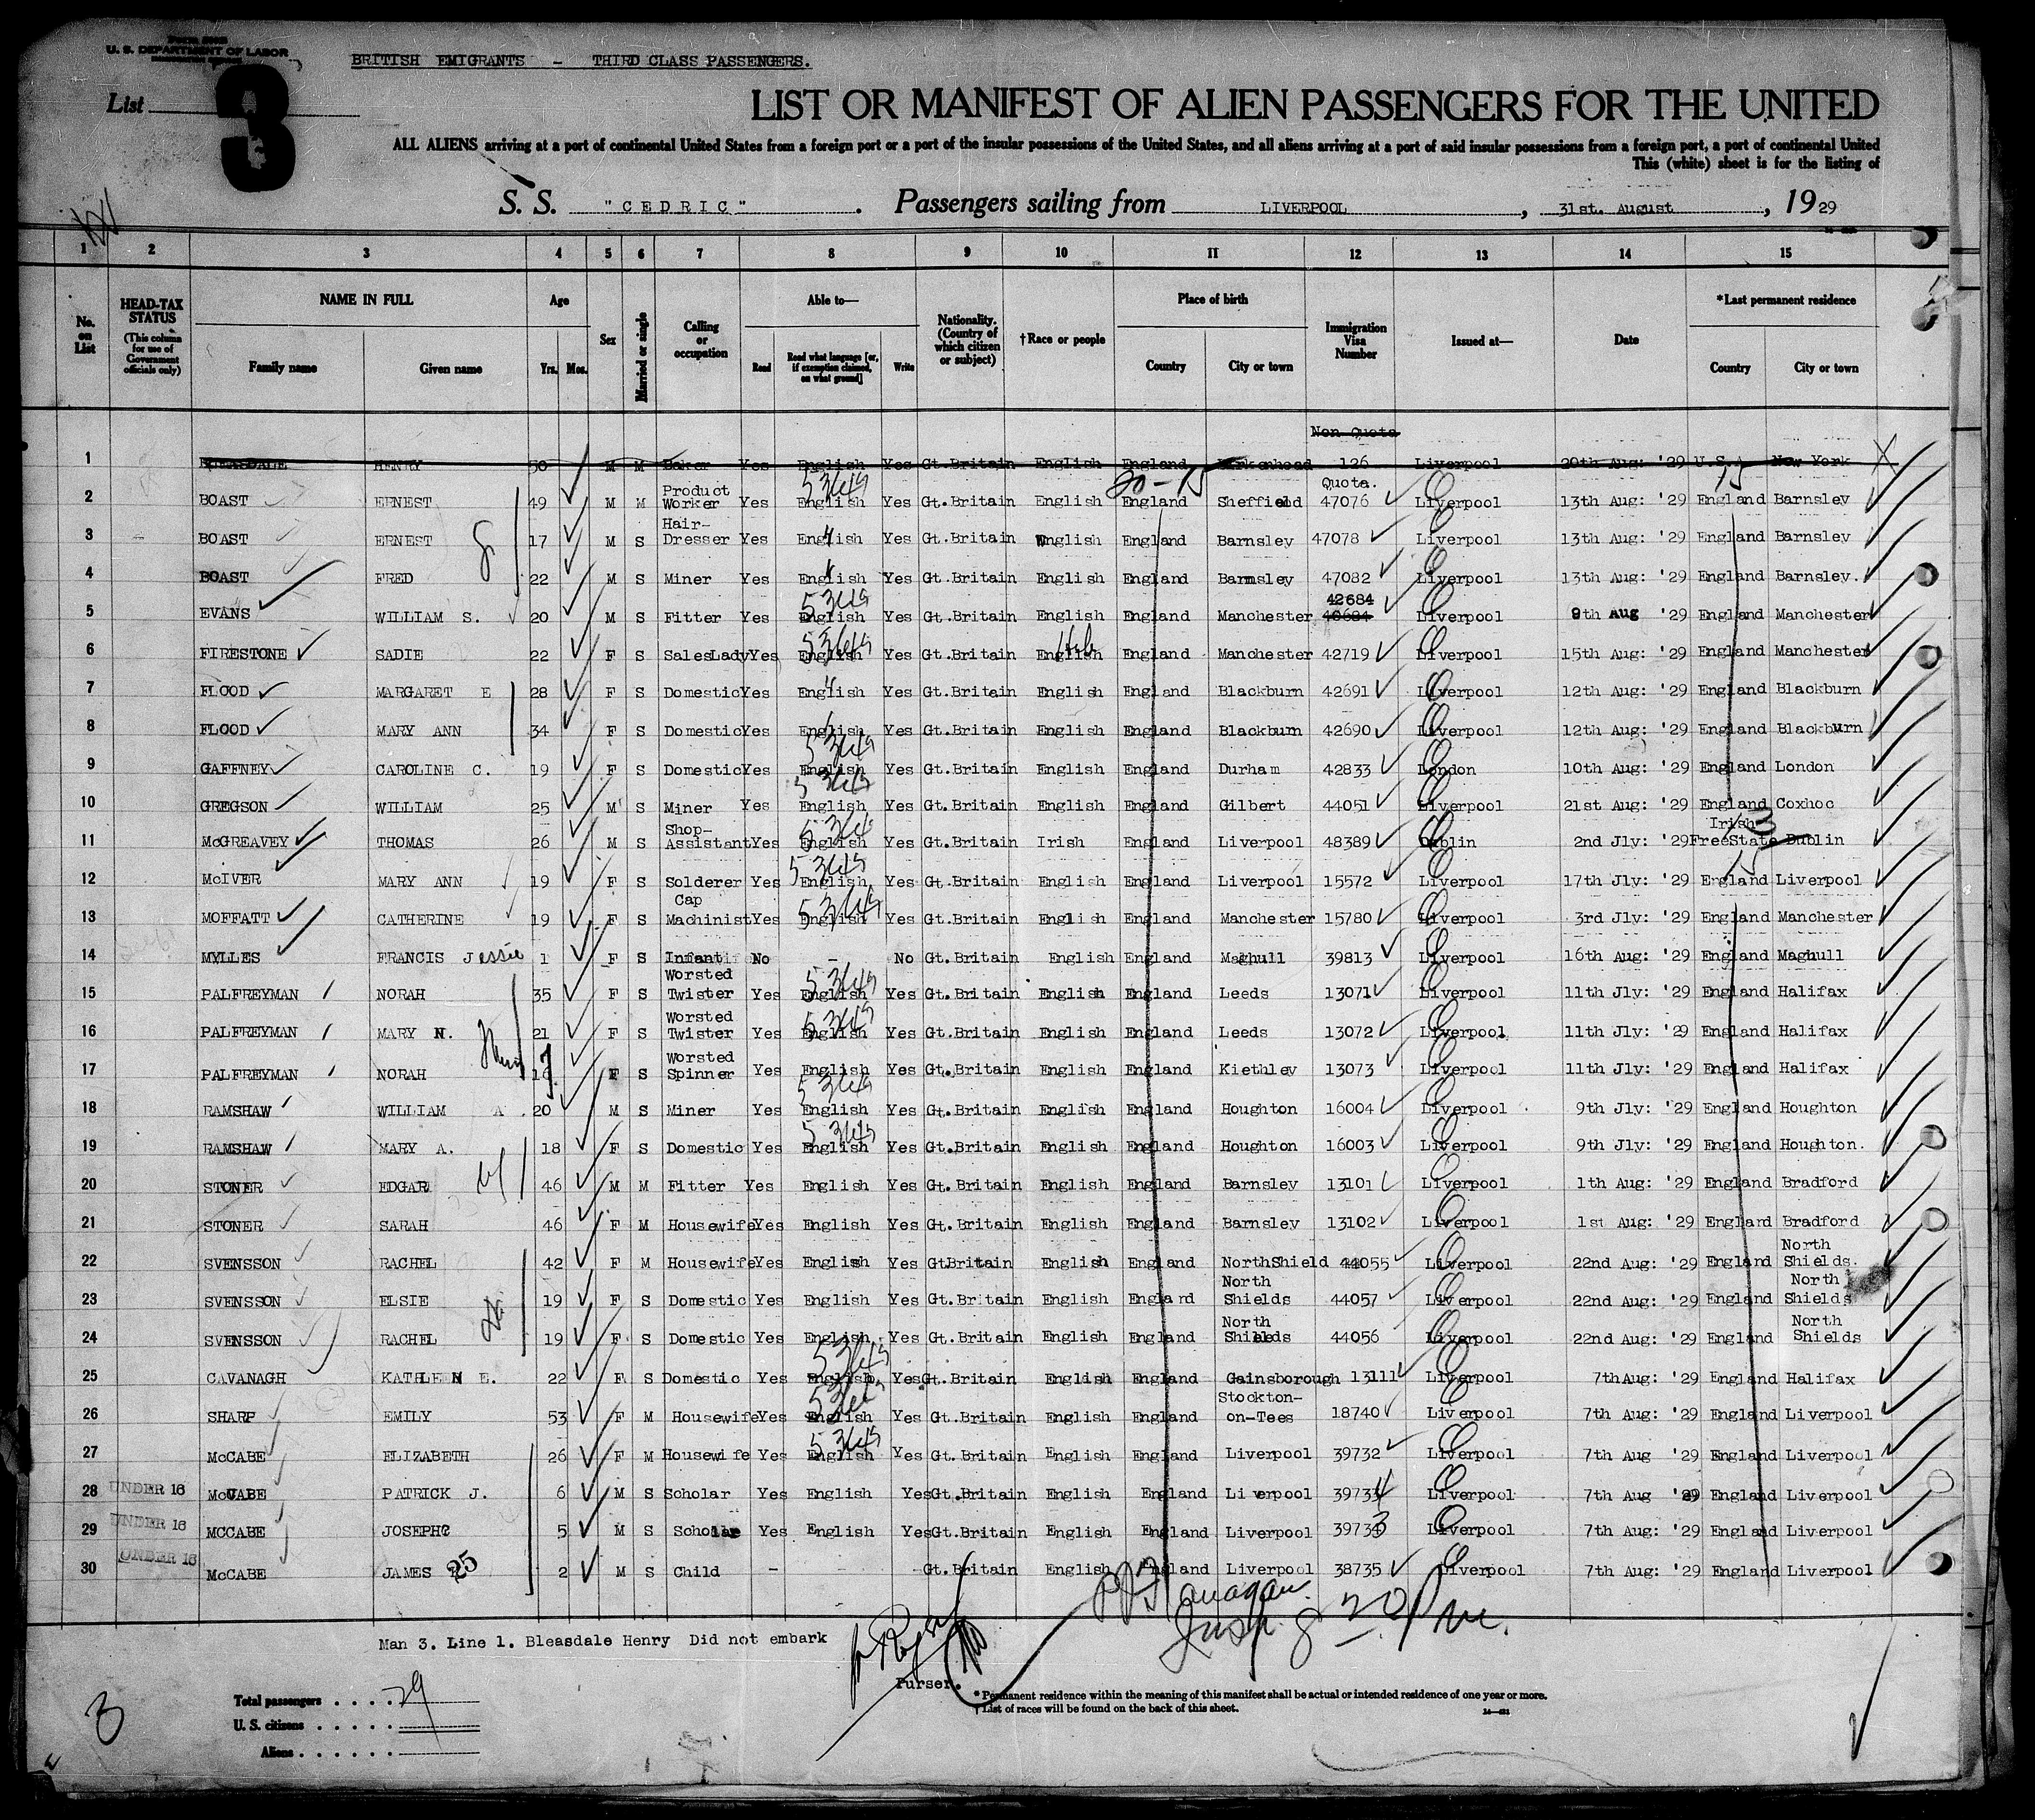 U. S. DEPARTMENT OF LABOR
BRITISH EMIGRANTS - THIRD CLASS PASSENGERS.
List 3
LIST OR MANIFEST OF ALIEN PASSENGERS FOR THE UNITED
ALL ALIENS arriving at a port of continental United States from a foreign port or a port of the insular possessions of the United States, and all aliens arriving at a port of said insular possessions from a foreign port, a port of continental United
This (white) sheet is for the listing of
S. S. "CEDRIC". Passengers sailing from LIVERPOOL, 31st. August, 1929
1 2 3 4 5 6 7 8 9 10 11 12 13 14 15
No. on List HEAD-TAX STATUS (This column for use of Government officials only) NAME IN FULL Family name Given name Age Yrs. Mos. Sex Married or single Calling or occupation Able to— Read Read what language [or, if exemption claimed, on what ground] Write Nationality. (Country of which citizen or subject) †Race or people Place of birth Country City or town Immigration Visa Number Issued at— Date *Last permanent residence Country City or town
Non Quota
1 BLEASDALE HENRY 50 M M Baker Yes English Yes Gt.Britain English England Birkenhead 126 Liverpool 20th Aug: '29 U.S.A New York
Quota.
2 BOAST ERNEST 49 M M Product Worker Yes English Yes Gt.Britain English England Sheffield 47076 Liverpool 13th Aug: '29 England Barnsley
3 BOAST ERNEST 17 M S Hair-Dresser Yes English Yes Gt.Britain English England Barnsley 47078 Liverpool 13th Aug: '29 England Barnsley
4 BOAST FRED 22 M S Miner Yes English Yes Gt.Britain English England Barnsley 47082 Liverpool 13th Aug: '29 England Barnsley.
5 EVANS WILLIAM S. 20 M S Fitter Yes English Yes Gt.Britain English England Manchester 42684 Liverpool 9th Aug '29 England Manchester
6 FIRESTONE SADIE 22 F S SalesLady Yes English Yes Gt.Britain English England Manchester 42719 Liverpool 15th Aug: '29 England Manchester
7 FLOOD MARGARET E 28 F S Domestic Yes English Yes Gt.Britain English England Blackburn 42691 Liverpool 12th Aug: '29 England Blackburn
8 FLOOD MARY ANN 34 F S Domestic Yes English Yes Gt.Britain English England Blackburn 42690 Liverpool 12th Aug: '29 England Blackburn
9 GAFFNEY CAROLINE C. 19 F S Domestic Yes English Yes Gt.Britain English England Durham 42833 London 10th Aug: '29 England London
10 GREGSON WILLIAM 25 M S Miner Yes English Yes Gt.Britain English England Gilbert 44051 Liverpool 21st Aug: '29 England Coxhoc
11 McGREAVEY THOMAS 26 M S Shop-Assistant Yes English Yes Gt.Britain Irish England Liverpool 48389 Dublin 2nd Jly: '29 Irish FreeState Dublin
12 McIVER MARY ANN 19 F S Solderer Yes English Yes Gt.Britain English England Liverpool 15572 Liverpool 17th Jly: '29 England Liverpool
13 MOFFATT CATHERINE 19 F S Cap Machinist Yes English Yes Gt.Britain English England Manchester 15780 Liverpool 3rd Jly: '29 England Manchester
14 MYLLES FRANCIS Jessie 1 F S Infant No - No Gt.Britain English England Maghull 39813 Liverpool 16th Aug: '29 England Maghull
15 PALFREYMAN NORAH 35 F S Worsted Twister Yes English Yes Gt.Britain English England Leeds 13071 Liverpool 11th Jly: '29 England Halifax
16 PALFREYMAN MARY N. 21 F S Worsted Twister Yes English Yes Gt.Britain English England Leeds 13072 Liverpool 11th Jly: '29 England Halifax
17 PALFREYMAN NORAH F S Worsted Spinner Yes English Yes Gt.Britain English England Kiethley 13073 Liverpool 11th Jly: '29 England Halifax
18 RAMSHAW WILLIAM A 20 M S Miner Yes English Yes Gt.Britain English England Houghton 16004 Liverpool 9th Jly: '29 England Houghton
19 RAMSHAW MARY A. 18 F S Domestic Yes English Yes Gt.Britain English England Houghton 16003 Liverpool 9th Jly: '29 England Houghton.
20 STONER EDGAR 46 M M Fitter Yes English Yes Gt.Britain English England Barnsley 13101 Liverpool 1th Aug: '29 England Bradford
21 STONER SARAH 46 F M Housewife Yes English Yes Gt.Britain English England Barnsley 13102 Liverpool 1st Aug: '29 England Bradford
22 SVENSSON RACHEL 42 F M Housewife Yes English Yes GtBritain English England NorthShield 44055 Liverpool 22nd Aug: '29 England North Shields.
23 SVENSSON ELSIE 19 F S Domestic Yes English Yes Gt.Britain English England North Shields 44057 Liverpool 22nd Aug: '29 England North Shields
24 SVENSSON RACHEL 19 F S Domestic Yes English Yes Gt.Britain English England North Shields 44056 Liverpool 22nd Aug: '29 England North Shields
25 CAVANAGH KATHLEEN E. 22 F S Domestic Yes English Yes Gt.Britain English England Gainsborough 13111 Liverpool 7thAug: '29 England Halifax
26 SHARP EMILY 53 F M Housewife Yes English Yes Gt.Britain English England Stockton-on-Tees 18740 Liverpool 7th Aug: '29 England Liverpool
27 McCABE ELIZABETH 26 F M Housewife Yes English Yes Gt.Britain English England Liverpool 39732 Liverpool 7th Aug '29 England Liverpool
28 UNDER 16 McCABE PATRICK J. 6 M S Scholar Yes English Yes Gt.Britain English England Liverpool 39734 Liverpool 7th Aug '29 England Liverpool
29 UNDER 16 MCCABE JOSEPH 5 M S Scholar Yes English Yes Gt.Britain English England Liverpool 39733 Liverpool 7th Aug: '29 England Liverpool
30 UNDER 16 McCABE JAMES 2 M S Child - - - Gt.Britain English England Liverpool 38735 Liverpool 7th Aug: '29 England Liverpool
25
P J Flanagan
Insp. 8 30 P m.
Man 3. Line 1. Bleasdale Henry Did not embark
Purser.
3
Total passengers . . . . 29
U. S. citizens . . . . .
Aliens . . . . . .
* Permanent residence within the meaning of this manifest shall be actual or intended residence of one year or more.
† List of races will be found on the back of this sheet.